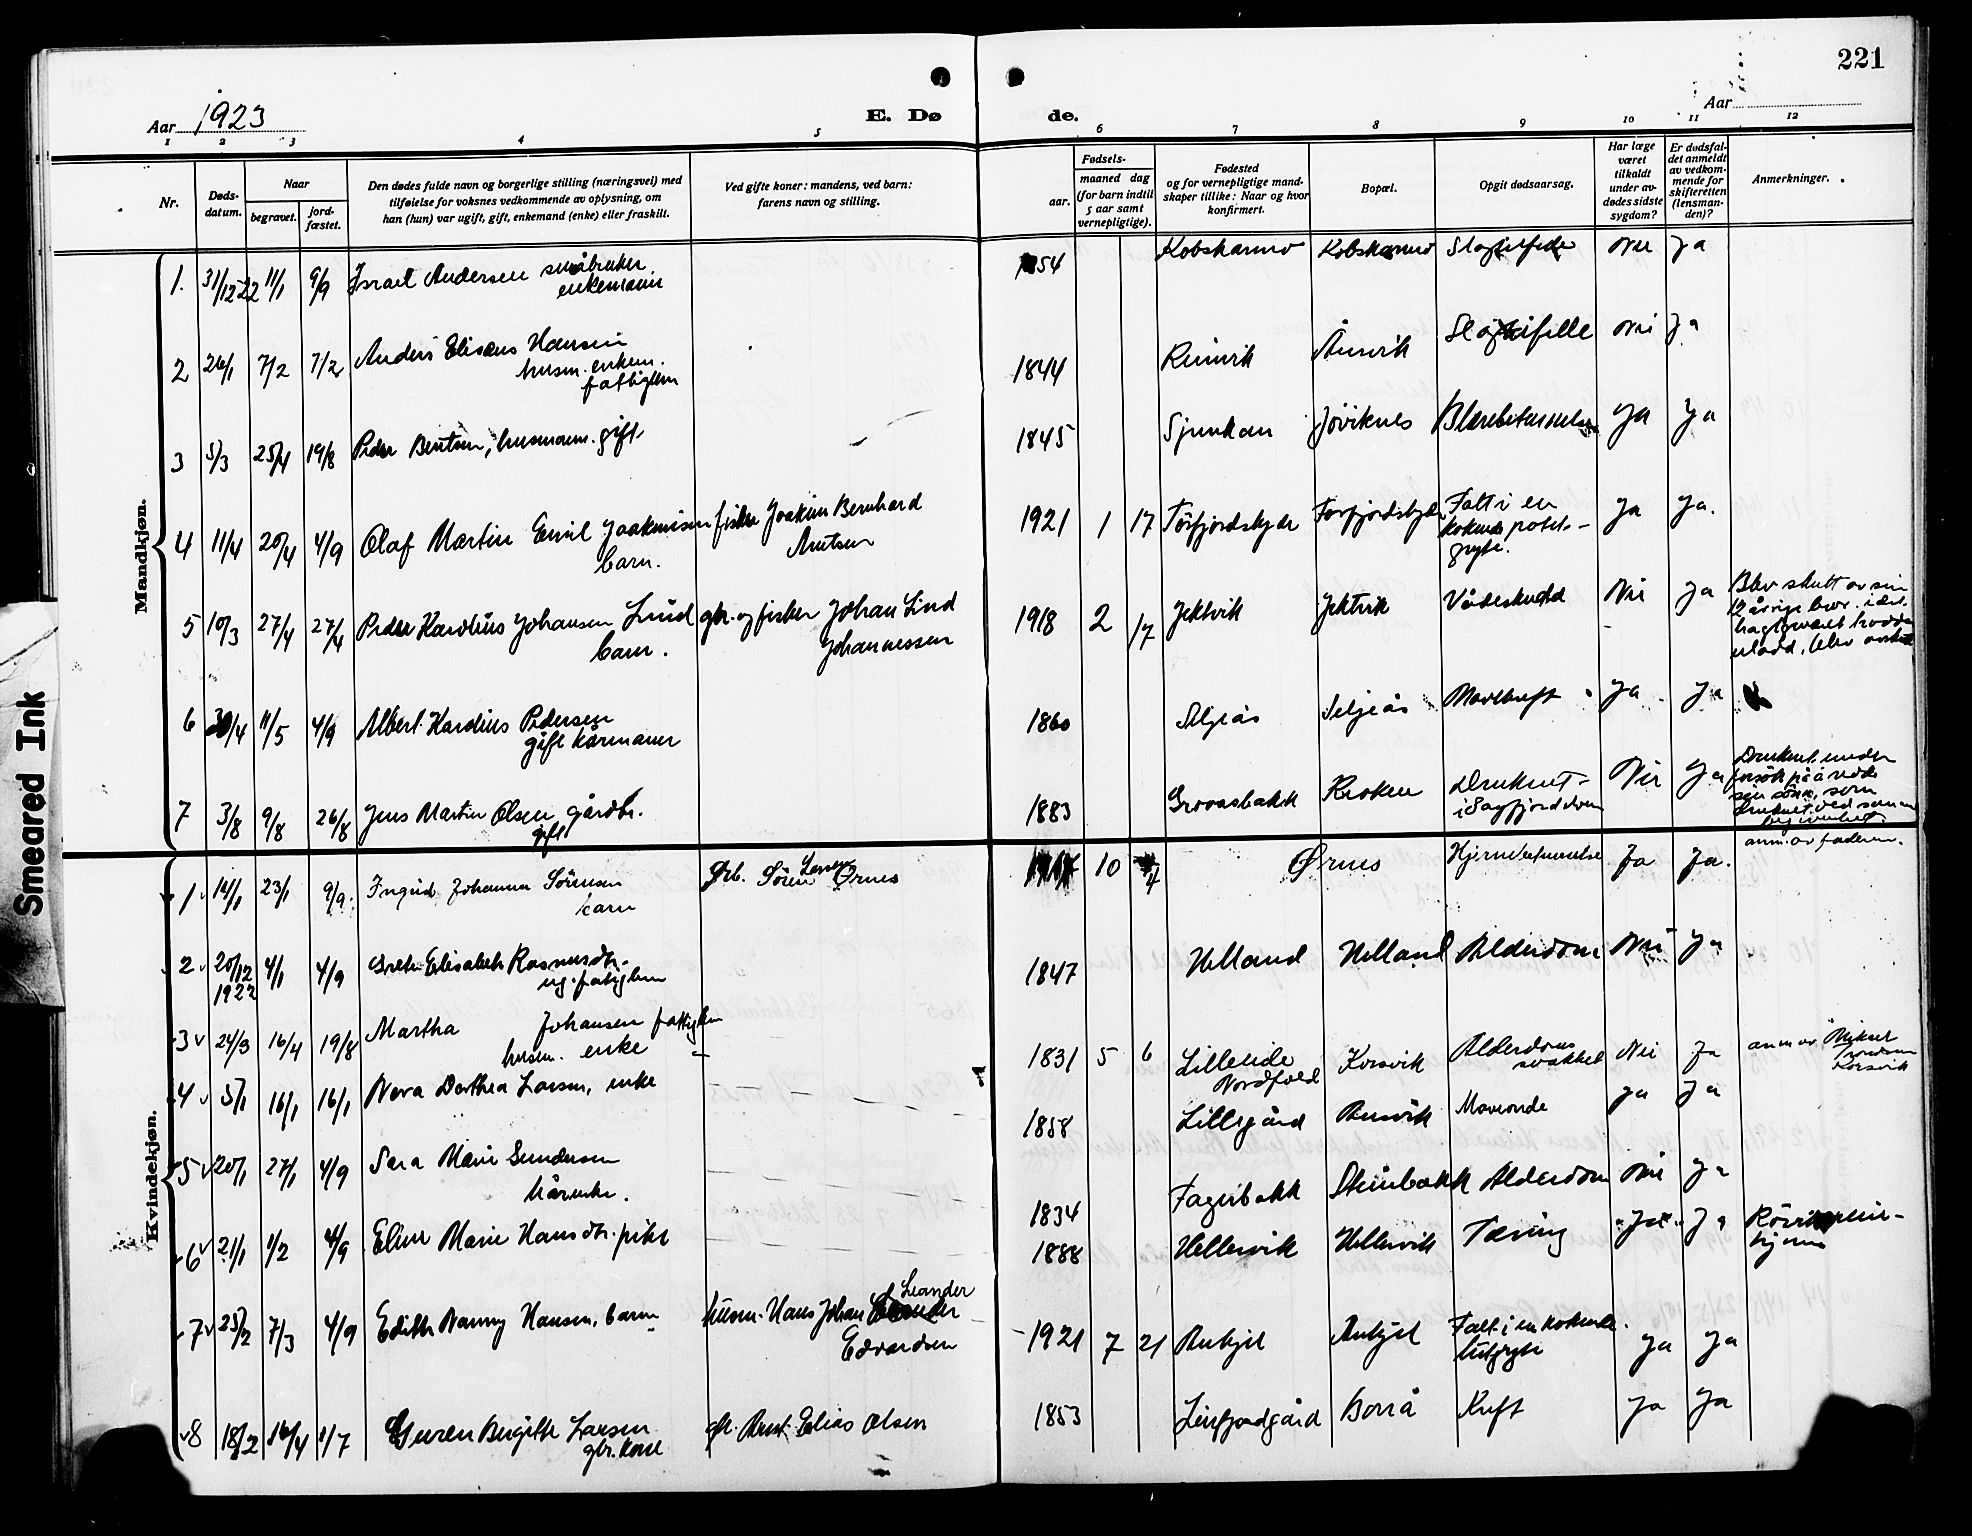 221
Aar 1923
E. Dø
de.
Aar
1 2 3 4 5 6 7 8 9 10 11 12
Nr.
Døds-
datum.
Naar
begravet.
jord-
fæstet.
Den dødes fulde navn og borgerlige stilling (næringsvei) med
tilføielse for voksnes vedkommende av oplysning, om
han (hun) var ugift, gift, enkemand (enke) eller fraskilt.
Ved gifte koner: mandens, ved barn:
farens navn og stilling.
Fødsels-
aar.
maaned dag
(for barn indtil
5 aar samt
vernepligtige).
Fødested
og for vernepligtige mand-
skaper tillike: Naar og hvor
konfirmert.
Bopæl.
Opgit dødsaarsag.
Har læge
været
tilkaldt
under av-
dødes sidste
sygdom?
Er dødsfal-
det anmeldt
av vedkom-
mende for
skifteretten
(lensman-
den)?
Anmerkninger.
Mandkjøn.
1. 31/12-22 11/1 9/9 Israel Andersen småbruker 1854 Kobskarmo Kobskarmo Nei Ja
enkemann
2 26/1 7/2 7/2 Anders Eliseus Hansen 1844 Reinvik Åusvik Nei Ja
husm. enkem.
fattiglem
3 5/3 25/4 19/8 Peder Bentsen, husmann. gift 1845 Sjunkan Jøviknes Blærebetennelse Ja Ja
4 11/4 20/4 4/9 Olaf Martin Emil Joakimsen fisker Joakim Bernhard 1921 1 17 Tørfjordskjær Falt i en Ja Ja.
barn. Arntsen kokende potet-
gryte.
5 10/3 27/4 27/4 Peder Kardius Johansen Lind gbr. og fisker Johan Lind 1918 2 17 Jektvik Jektvik Vådeskudd Nei Ja Blev skutt av sin
barn. Johannessen 12 årige bror. i det.
haglgeværet trodde
uladd, blev
6 30/4 11/5 4/9 Albert Kardius Pedersen 1860 Seljeås Seljeås Mavekreft Ja Ja
gift kårmann
7 3/8 9/8 26/8 Jens Martin Olsen gårdbr. 1883 Grovasbakk Kroken Druknet Nei Ja Druknet under
gift i Sagfjorden forsøk på å redde
sin sønn, som
druknet ved samme
begivenhet.
Kvindekjøn.
anm. av faderen.
1 14/1 23/1 9/9 Ingrid Johanna Sörensen Grb. Sören Larsen Ørnes 1917 10 4 Ørnes Hjernebetennelse Ja Ja.
barn
2 20/12 1922 4/1 4/9 Grete Elisabeth Rasmusdtr. 1847 Helland Helland Alderdom Nei Ja
ug. fattiglem
3 24/3 16/4 19/8 Martha Johansen fattiglem 1831 5 6 Lilleeide Korsvik Alderdoms Nei Ja anm. av Mikael
husm. enke Nordfold svakhet Korsvik
4 5/1 16/1 16/1 Nora Dorthea Larsen, enke 1858 Lillegård Ausvik Ja Ja
5 20/1 27/1 4/9 Sara Marie Gundersen 1834 Fagerbakk Steinbakk Alderdom Nei Ja
kårenke.
6 21/1 1/2 4/9 Eline Marie Hansdtr. pike 1888 Hellervik Hellervik Tæring Ja Ja
hjem
7 25/2 7/3 4/9 Edith Nanny Hansen, barn husm. Hans Johan Leander 1921 7 21 Falt i en kokende Ja Ja
Edvardsen lutgryte
8 18/2 16/4 1/7 Guren Birgitte Larsen gbr. Arnt Elias Olsen 1853 Leirfjordgård Borrå Kreft Ja Ja
gbr. kone
Smeared Ink